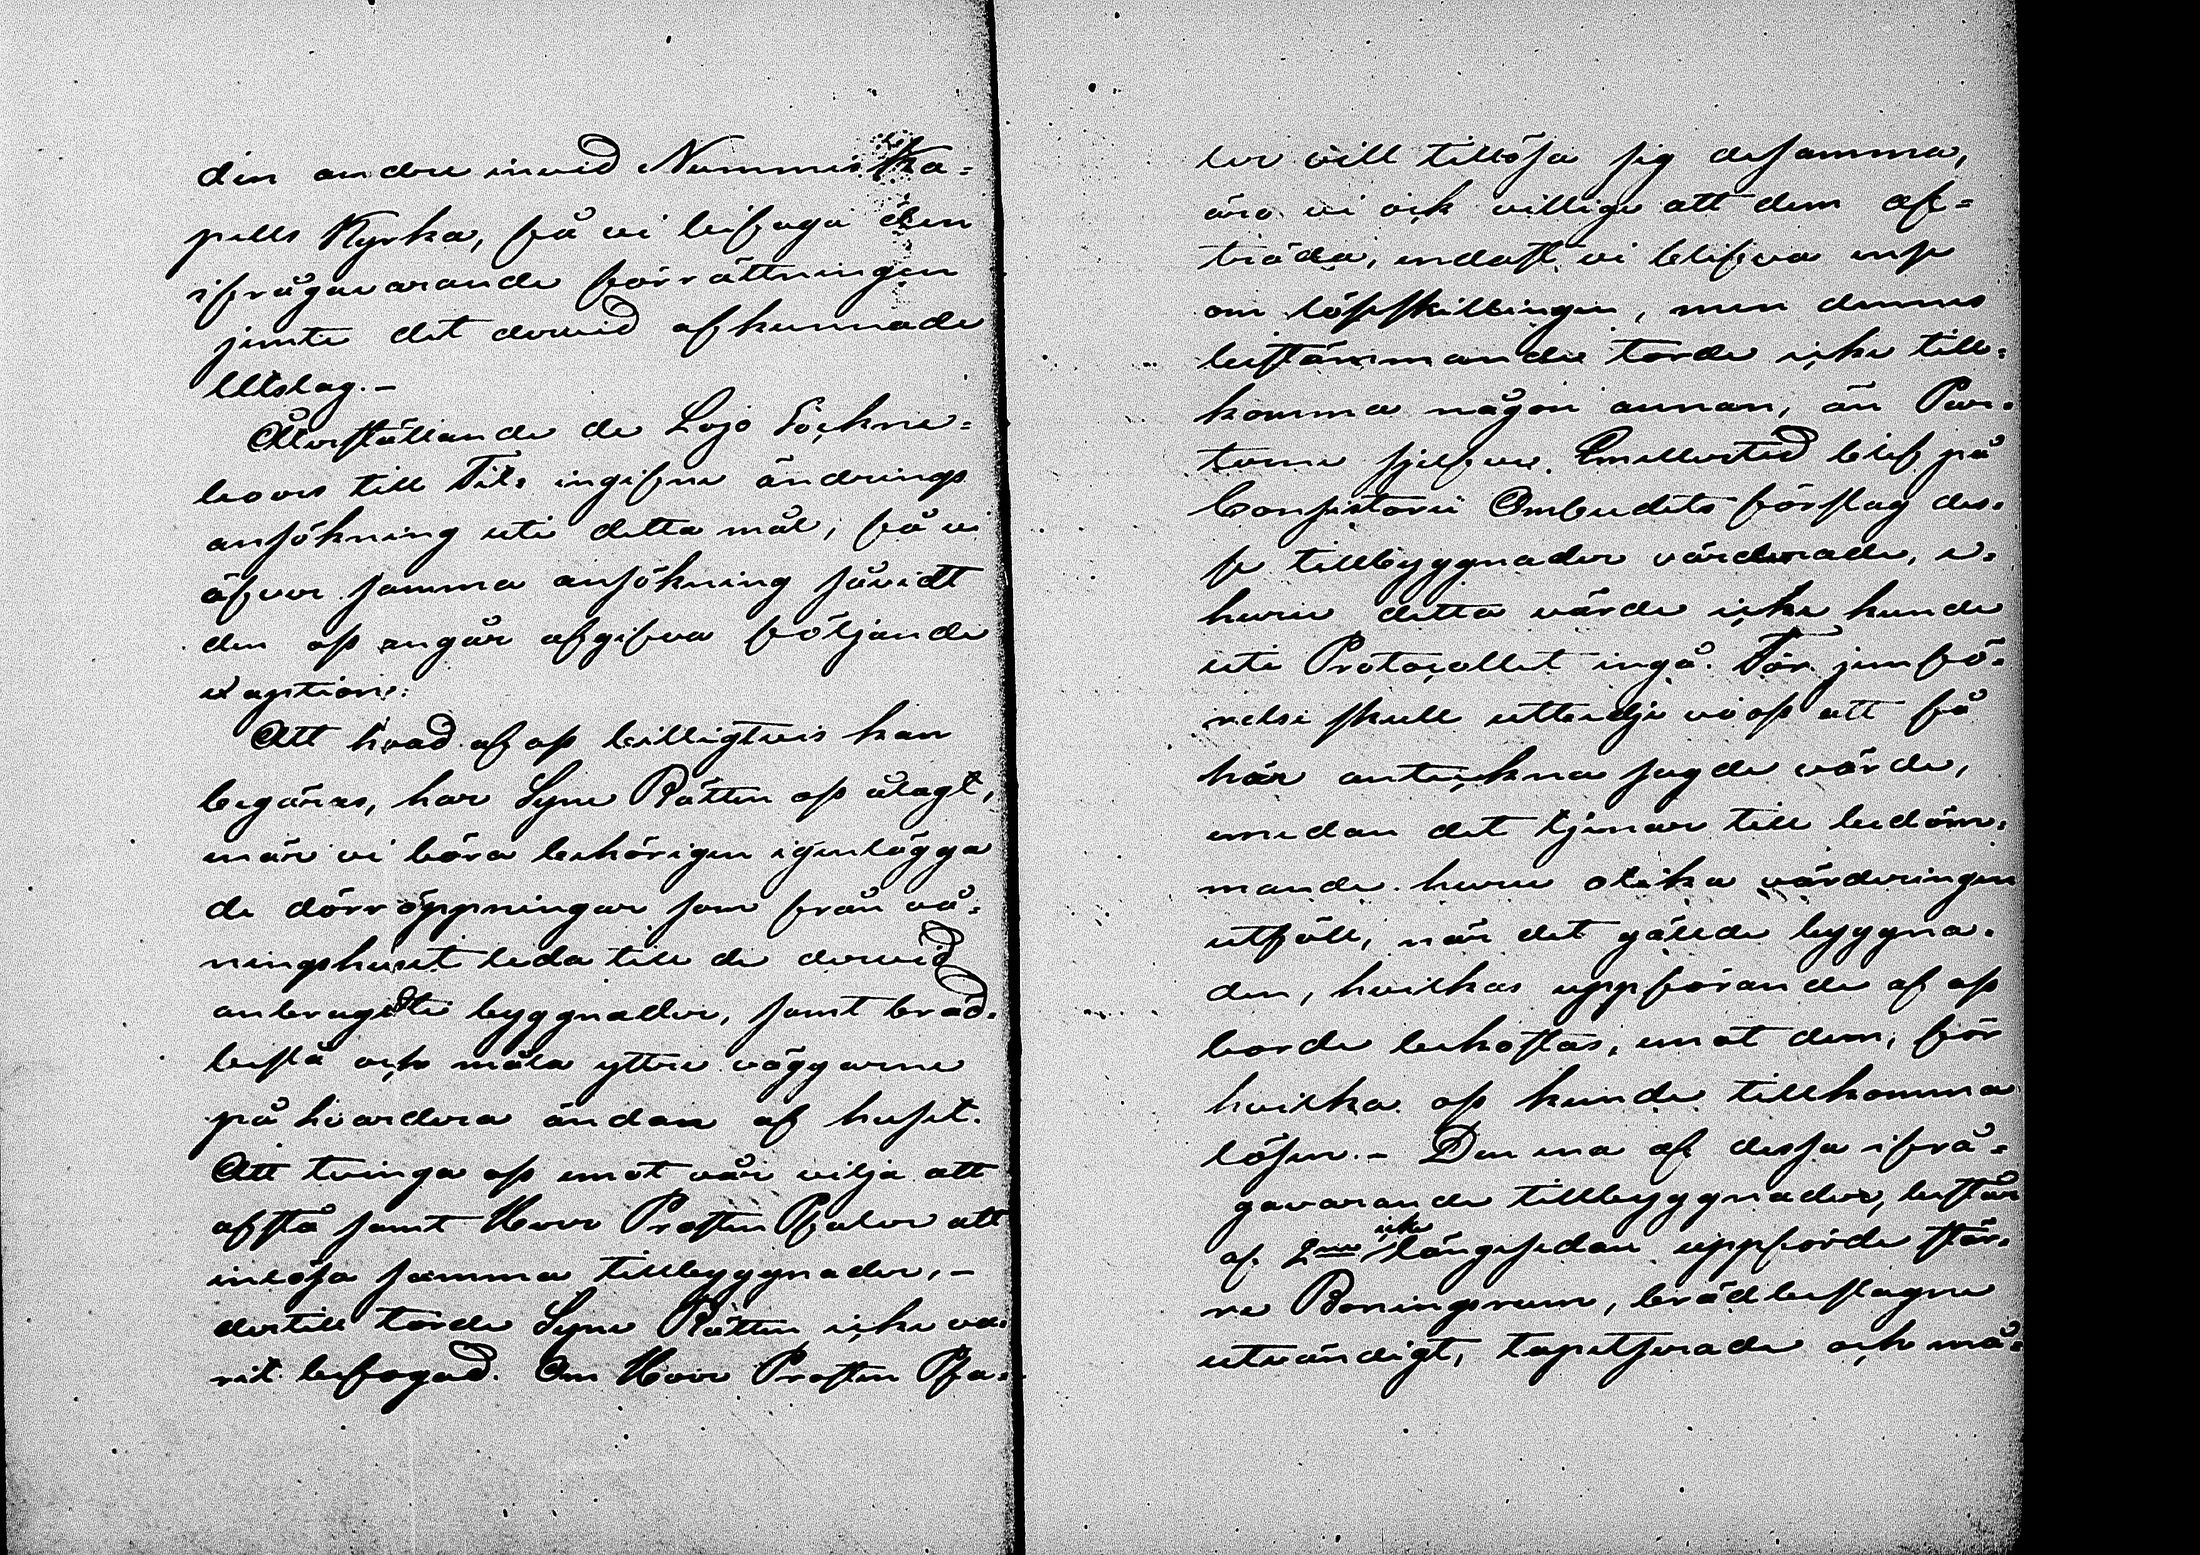 den andre invid Nummis Ka=
pells Kyrka, få vi bifoga den
ifrågavarande förrättningen
jemte det dervid afkunnade
Utslag.–
Återställande de Lojo Sockne=
boers till Tit. ingifne ändrings
ansökning uti detta mål, få vi
öfver samma ansökning såvidt
den oss angår afgifva följande
exaption:
Att hvad af oss billigtvis kan
begäras, har Syne Rätten oss ålagt,
när vi böra behörigen igenlägga
de dörröppningar som från vå=
ningshuset leda till de dervid
anbragte byggnader, samt bräd.
beslå och måla yttre väggarne
på hvardera ändan af huset.
Att tvinga oss emot vår vilja att
afstå samt Herr Prosten Pfaler att
inlösa samma tillbyggnader,–
dertill torde Syne Rätten icke va=
rit befogad. Om Herr Prosten Pfa=
ler vill tillösa sig desamma,
äro vi ock villige att dem af=
träda, endast vi blifva ense
om löseskillingen, men dennes
bestämmande torde icke till=
komma någon annan, än Par=
terne sjelfve. Emellertid blef på
Consistorii Ombudets förslag des=
se tillbyggnader värderade, e=
huru detta värde icke kunde
uti Protocollet ingå. För jemfö=
relse skull utbedje vi oss att få
här anteckna sagde värde,
emedan det tjenar till bedöm=
mande huru olika värderingen
utföll, när det gällde byggna=
der, hvilkas uppförande af oss
borde bekostas, emot dem, för
hvilka oss kunde tillkomma
lösen.– Den ena af dessa ifrå=
gavarande tillbyggnader, består
af 2ne icke långesedan uppförde stör=
re Boningsrum, brädbeslagne
utvändigt, tapetserade och må=